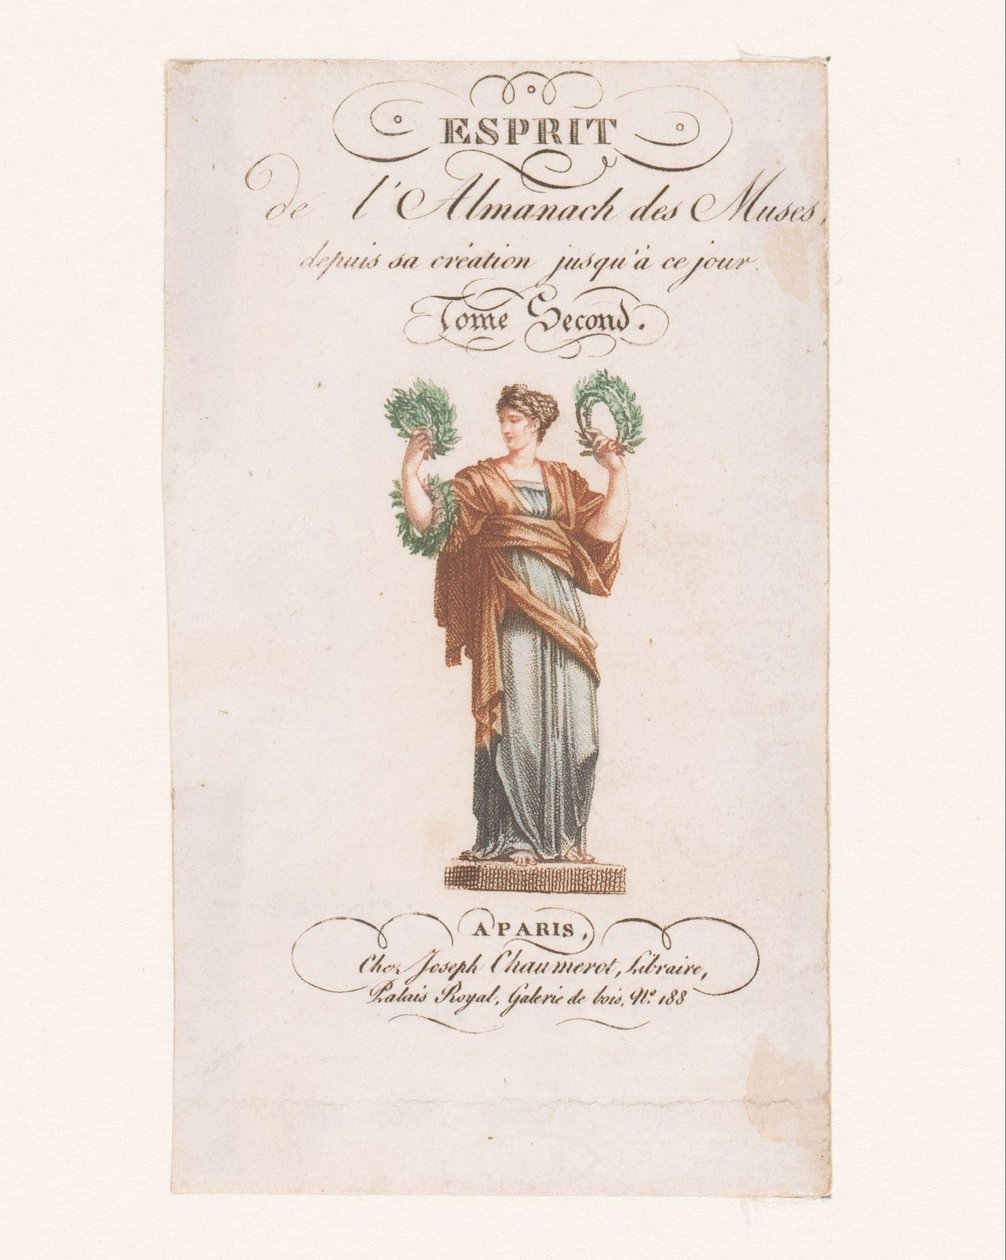 ESPRIT
de l'Almanach des Muses,
depuis sa création jusqu'à ce jour.
Tome Second.
A PARIS,
Chez Joseph Chaumerot, Libraire,
Palais Royal, Galerie de bois, Nº 188